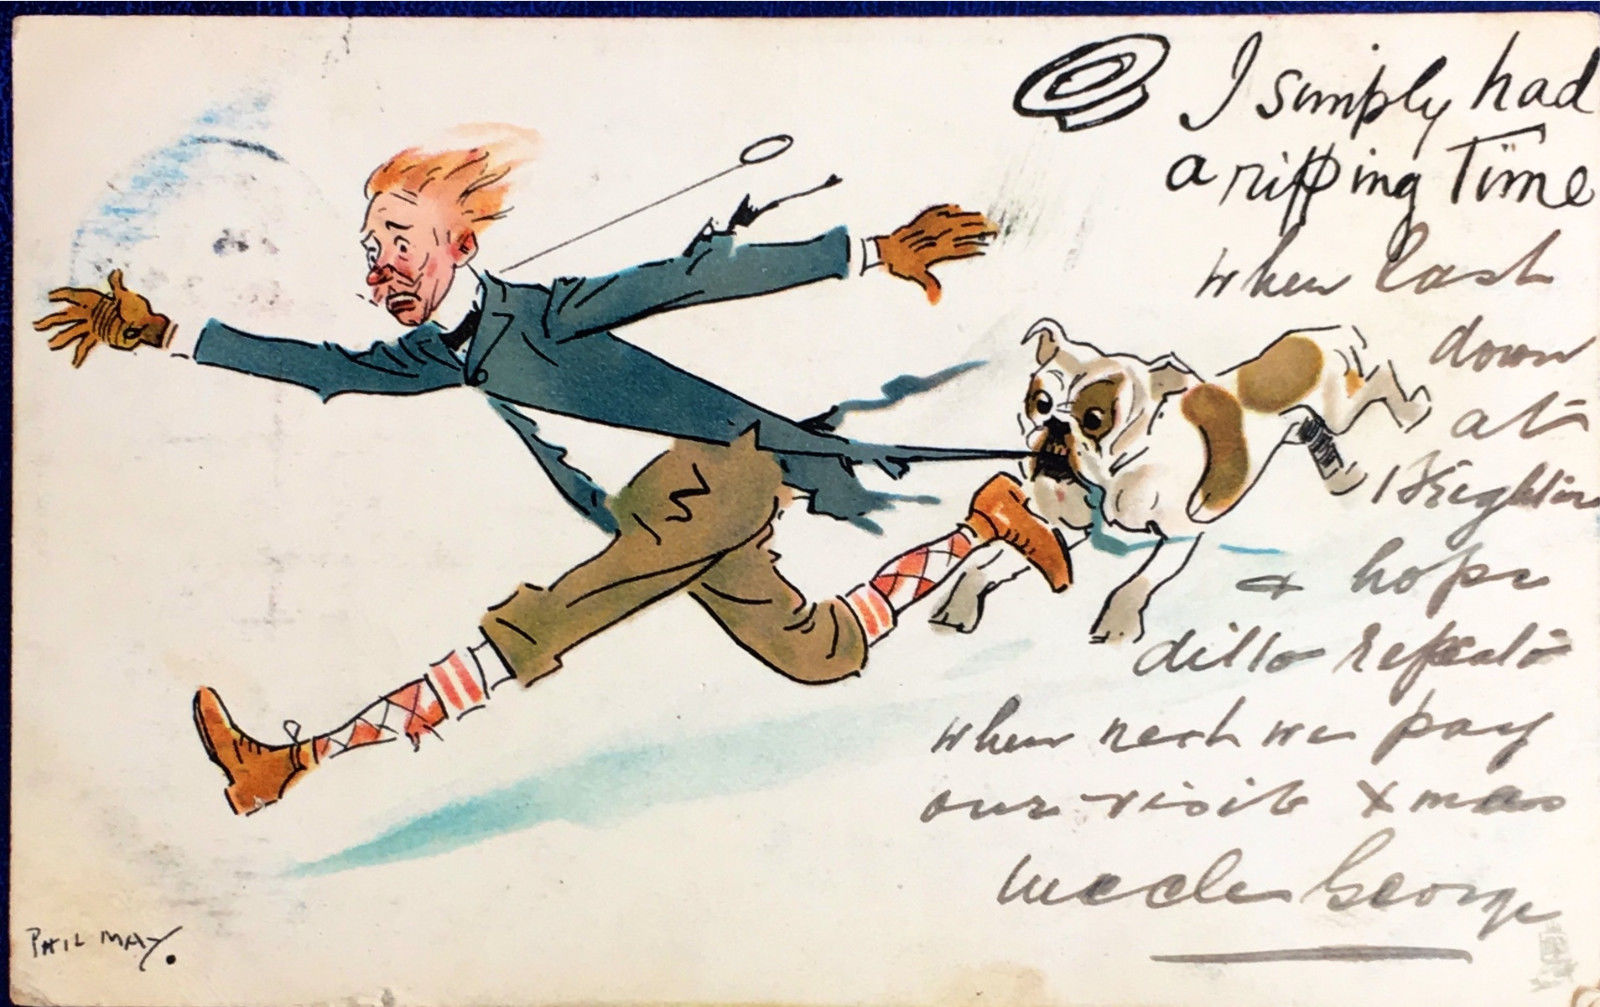 I simply had
a ripping Time
when last
down
at
Brighton
& hope
ditto repeato
when next we pay
our visit Xmas
Uncle George
PHIL MAY.